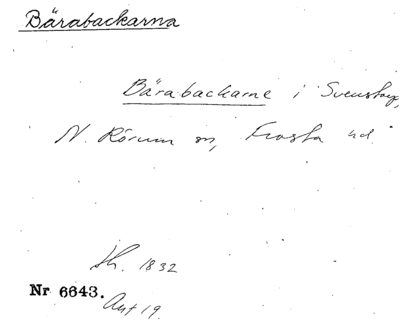 Bärabackarna
Bärabackarne i Svenstorp,
N. Rörum sn, Frosta hd.
Sk. 1832
Nr 6643.
Akt 19.